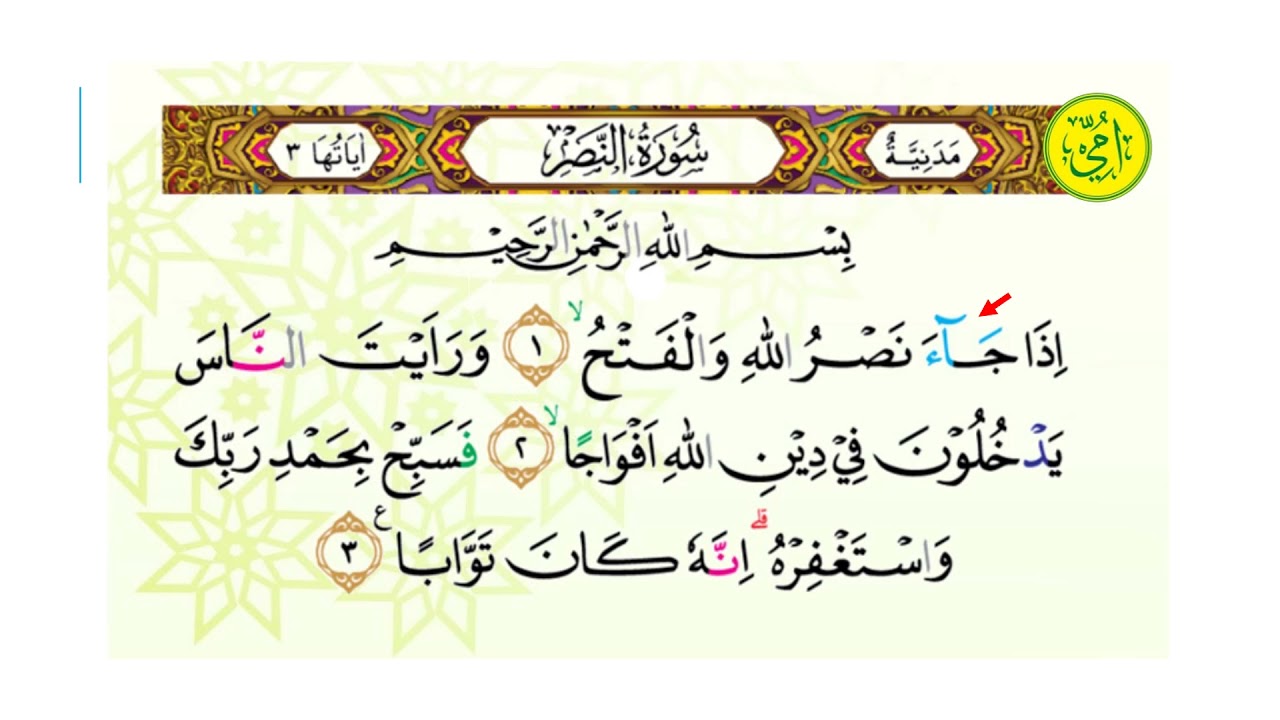 مَدَنِيَّةٌ سُوْرَةُ النَّصْرِ اٰيَاتُهَا ٣
اُمِّيّ
بِسْمِ اللهِ الرَّحْمٰنِ الرَّحِيْمِ
اِذَا جَآءَ نَصْرُ اللهِ وَالْفَتْحُ ۙ ١ وَرَاَيْتَ النَّاسَ
يَدْخُلُوْنَ فِيْ دِيْنِ اللهِ اَفْوَاجًا ۙ ٢ فَسَبِّحْ بِحَمْدِ رَبِّكَ
وَاسْتَغْفِرْهُ ۗ اِنَّهٗ كَانَ تَوَّابًا ࣖ ٣